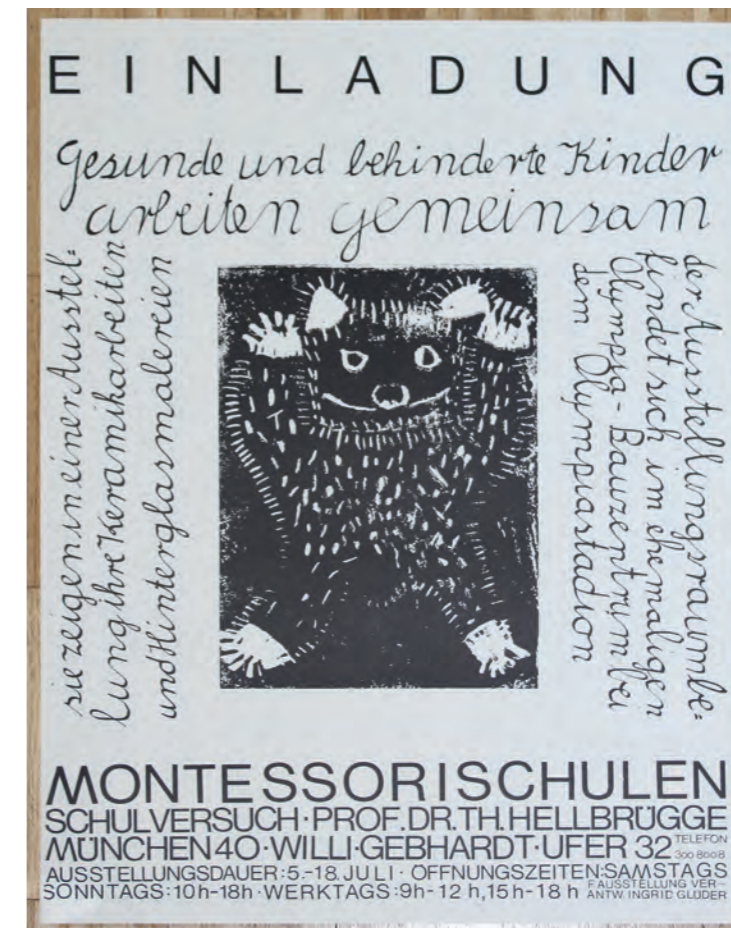 EINLADUNG
Gesunde und behinderte Kinder
arbeiten gemeinsam
sie zeigen in einer Ausstel=
lung ihre Keramikarbeiten
und Hinterglasmalereien
der Ausstellungsraum be=
findet sich im ehemaligen
Olympia-Bauzentrum bei
dem Olympiastadion
MONTESSORISCHULEN
SCHULVERSUCH·PROF.DR.TH.HELLBRÜGGE
MÜNCHEN 40·WILLI·GEBHARDT·UFER 32 TELEFON 300 8008
AUSSTELLUNGSDAUER:5.-18.JULI·ÖFFNUNGSZEITEN:SAMSTAGS
SONNTAGS:10h-18h·WERKTAGS:9h-12h,15h-18h F.AUSSTELLUNG VER-
ANTW. INGRID GLÜDER